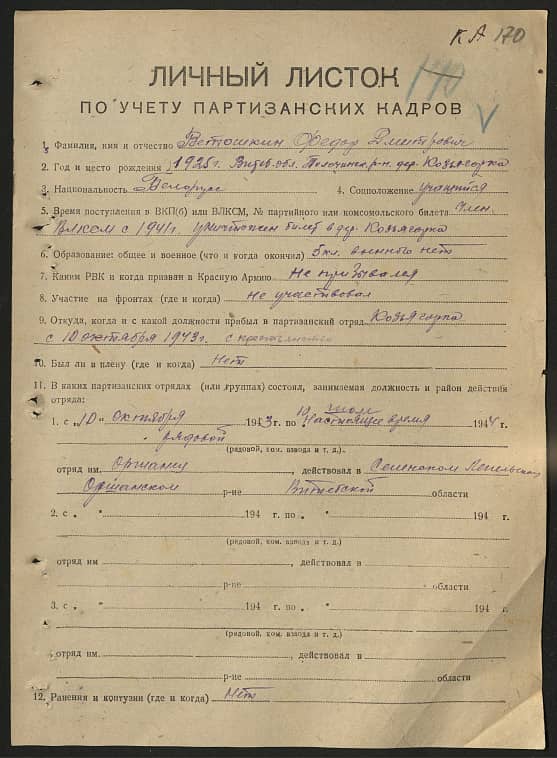 КА 170
170
ЛИЧНЫЙ ЛИСТОК
ПО УЧЕТУ ПАРТИЗАНСКИХ КАДРОВ
1. Фамилия, имя и отчество Ветошкин Федор Дмитрович
2. Год и место рождения 1925 г. Витеб. обл. Толочинск. р-н. дер. Козьягорка
3. Национальность Белорус 4. Соцположение учащийся
5. Время поступления в ВКП(б) или ВЛКСМ, № партийного или комсомольского билета Член
ВЛКСМ с 1941г. уничтожен билет в дер. Козьягорка
6. Образование: общее и военное (что и когда окончил) 5 кл. военного нет
7. Каким РВК и когда призван в Красную Армию Не призывался
8. Участие на фронтах (где и когда) Не участвовал
9. Откуда, когда и с какой должности прибыл в партизанский отряд Козьягорка
с 10 октября 1943г. с
10. Был ли в плену (где и когда) Нет
11. В каких партизанских отрядах (или группах) состоял, занимаемая должность и район действия
отряда:
1. с „10" октября 1943 г. по 10 июля Настоящее время 1944 г.
рядовой
(рядовой, ком. взвода и т. д.).
отряд им. действовал в Сенненском Лепельском
Оршанском р-не Витебской области
2. с „ " 194 г. по „ " 194 г.
(рядовой, ком. взвода и т. д.)
отряд им. действовал в
р-не области
3. с „ " 194 г. по „ " 194 г.
(рядовой, ком. взвода и т. д.)
отряд им. действовал в
р-не области
12. Ранения и контузии (где и когда) Нет